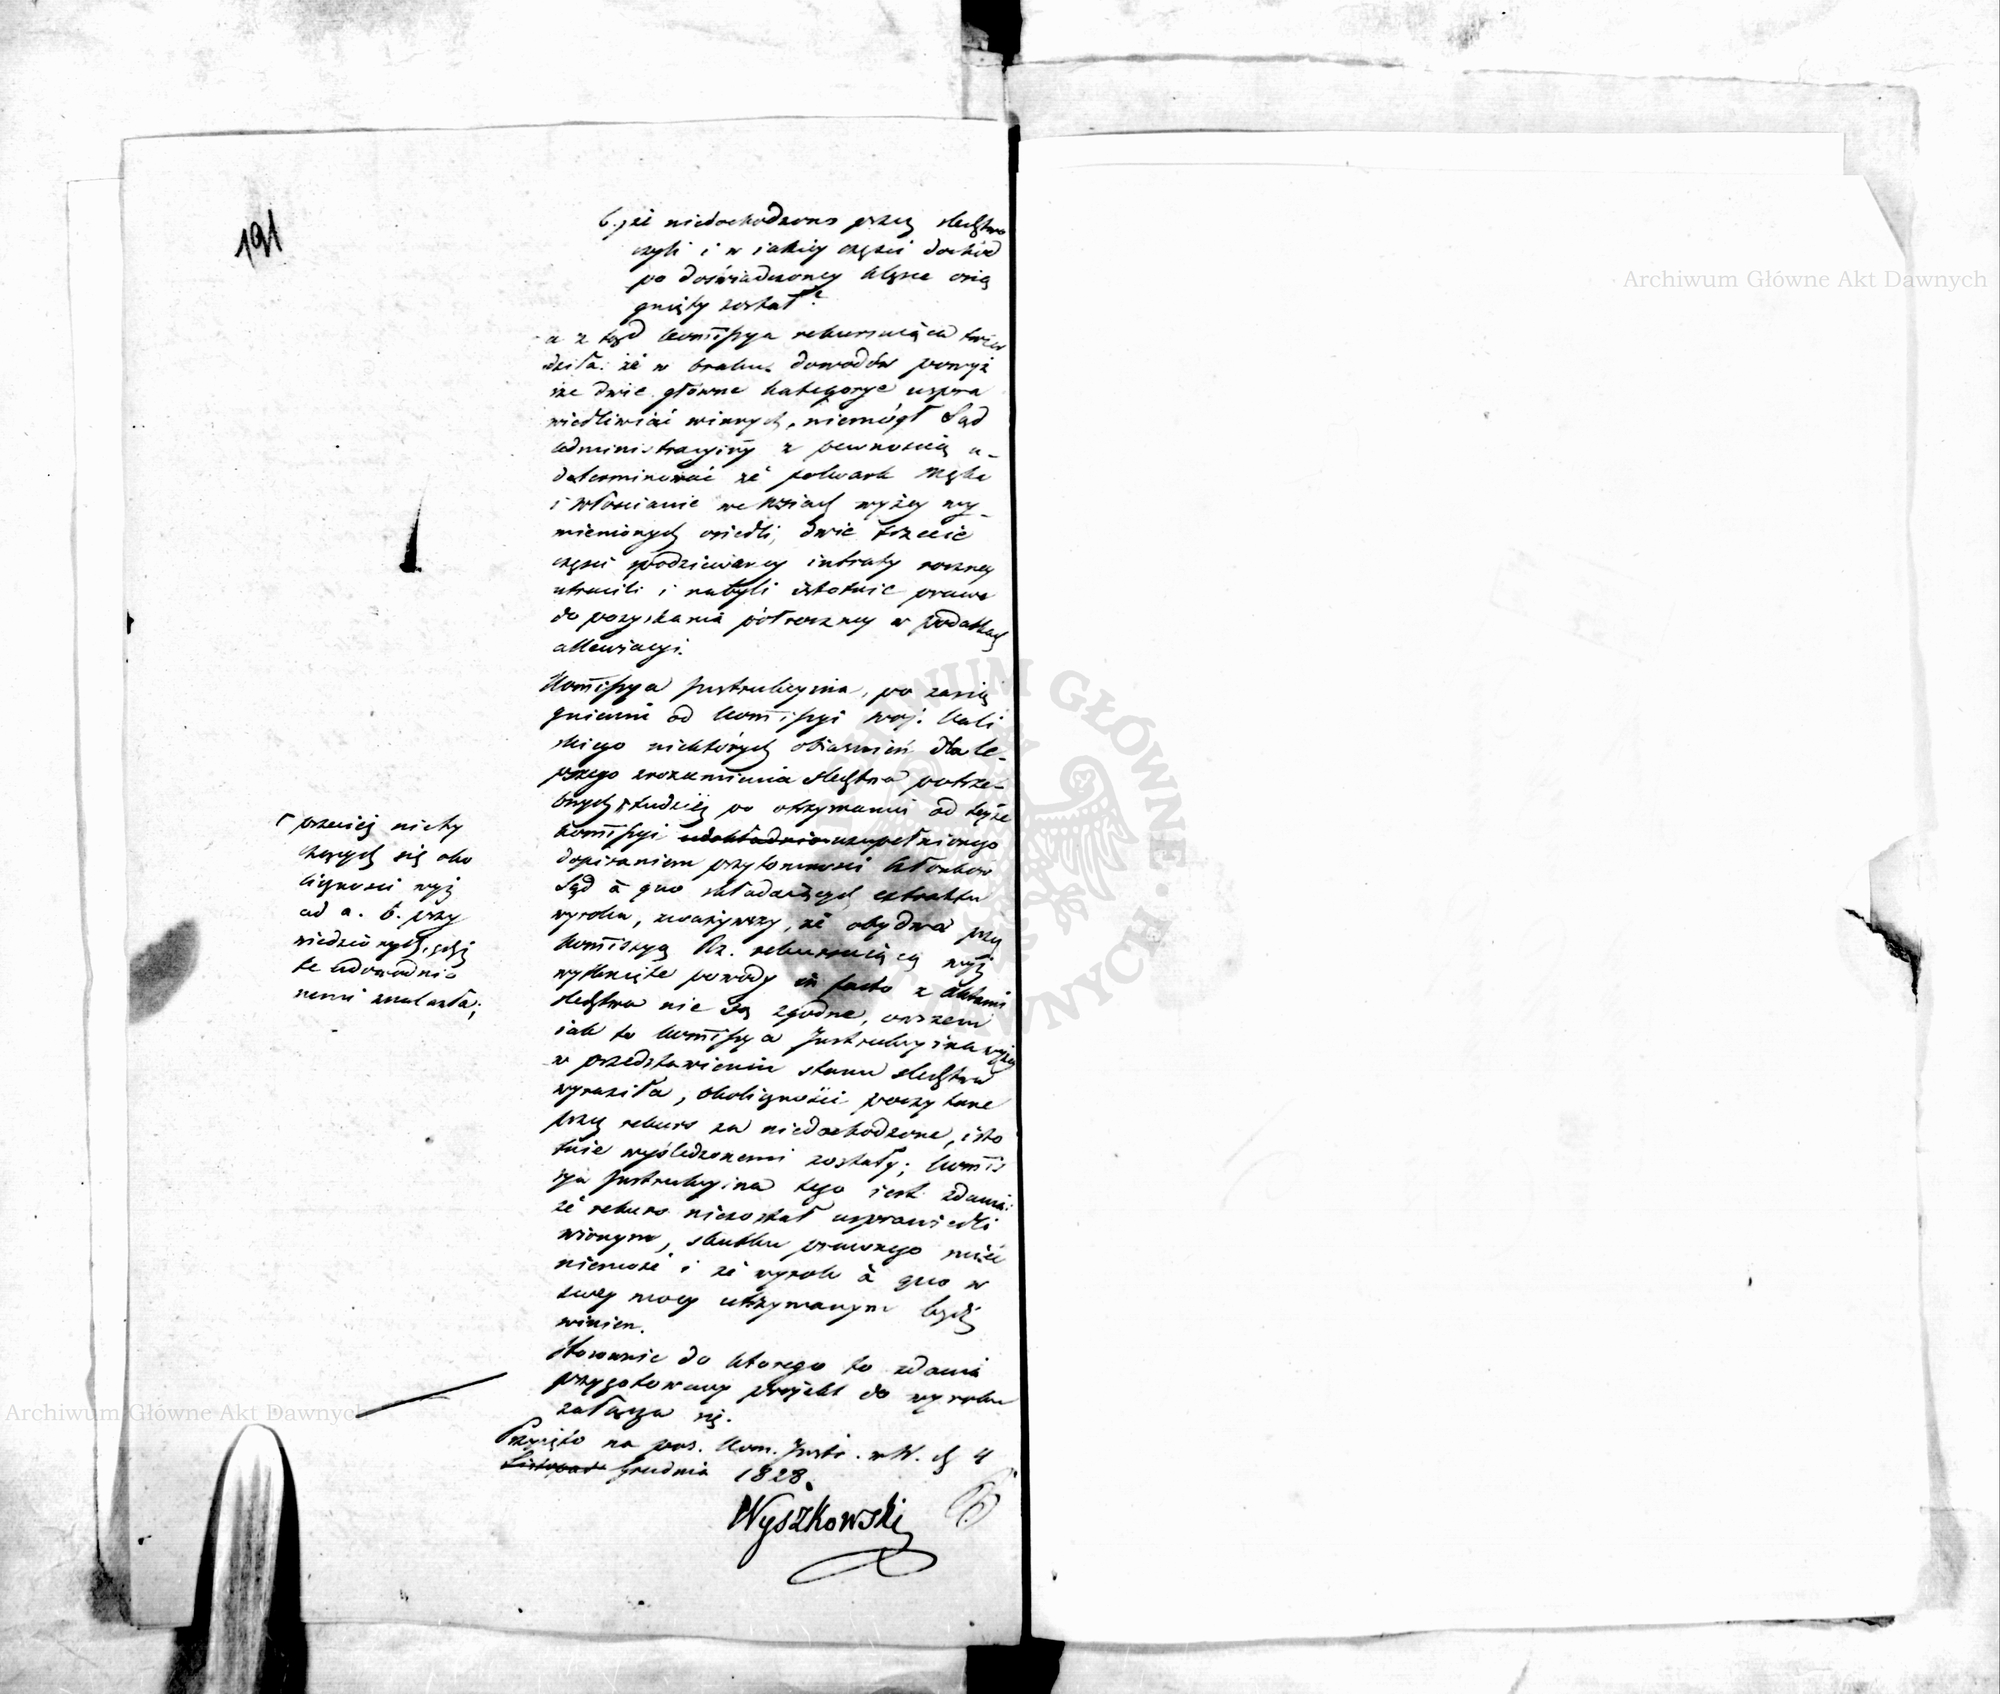 191
6. że niedochodzono przez śledztwo
czyli i w iakiey części dochód
po doświadczoney klęsce osią
gnięty został?
a z tąd Kommissya rekursuiąca twier
dziła: że w braku dowodów powyż
sze dwie główne kategorye uspra
wiedliwiać winnych, niemógł Sąd
Administracyiny z pewnością u-
determinować że folwark Męka
i włościanie we wsiach wyżey wy-
mienionych osiedli, dwie trzecie
części spodziewaney intraty roczney
utracili i nabyli istotnie prawa
do pozyskania półroczney w podatkach
allewiacyi.
Kommissya Instrukcyina, po zasią
gnieniu od Kommissyi Woj. Kali
skiego niektórych obiaśnień dla le-
pszego zrozumienia śledztwa potrze-
bnych, tudzież po otrzymaniu od teyże
Kommissyi uzupełnionego
dopisaniem przytomności Członków
Sąd à quo składaiących extraktu
wyroku, zważywszy, że obydwa przez
Kommissyą Rz. rekursuiącą wyż
wytknięte powody in facto z aktami
śledztwa nie są zgodne, owszem
iak to Kommissya Instrukcyina wyżey
w przedstawieniu stanu śledztwa
wyraziła, okoliczności poczytane
przez rekurs za niedochodzone, isto
tnie wyśledzonemi zostały; Kommis
sya Instrukcyina tego iest zdania:
że rekurs niezostał usprawiedli
wionym, skutku prawnego mieć
niemoże i że wyrok à quo w
swey mocy utrzymanym bydź
winien.
Stosownie do którego to zdania
przygotowany projekt do wyroku
załącza się.
Przyięto na pos. Kom. Instr. w W. d. 4
Listopad Grudnia 1828.
Wyszkowski
przeciez niety
czących się oko
liczności wyż
ad a. b. przy
wiedzionych, gdy
te udowodnio
nemi znalazła;
Archiwum Główne Akt Dawnych
Archiwum Główne Akt Dawnych
ARCHIWUM GŁÓWNE AKT DAWNYCH